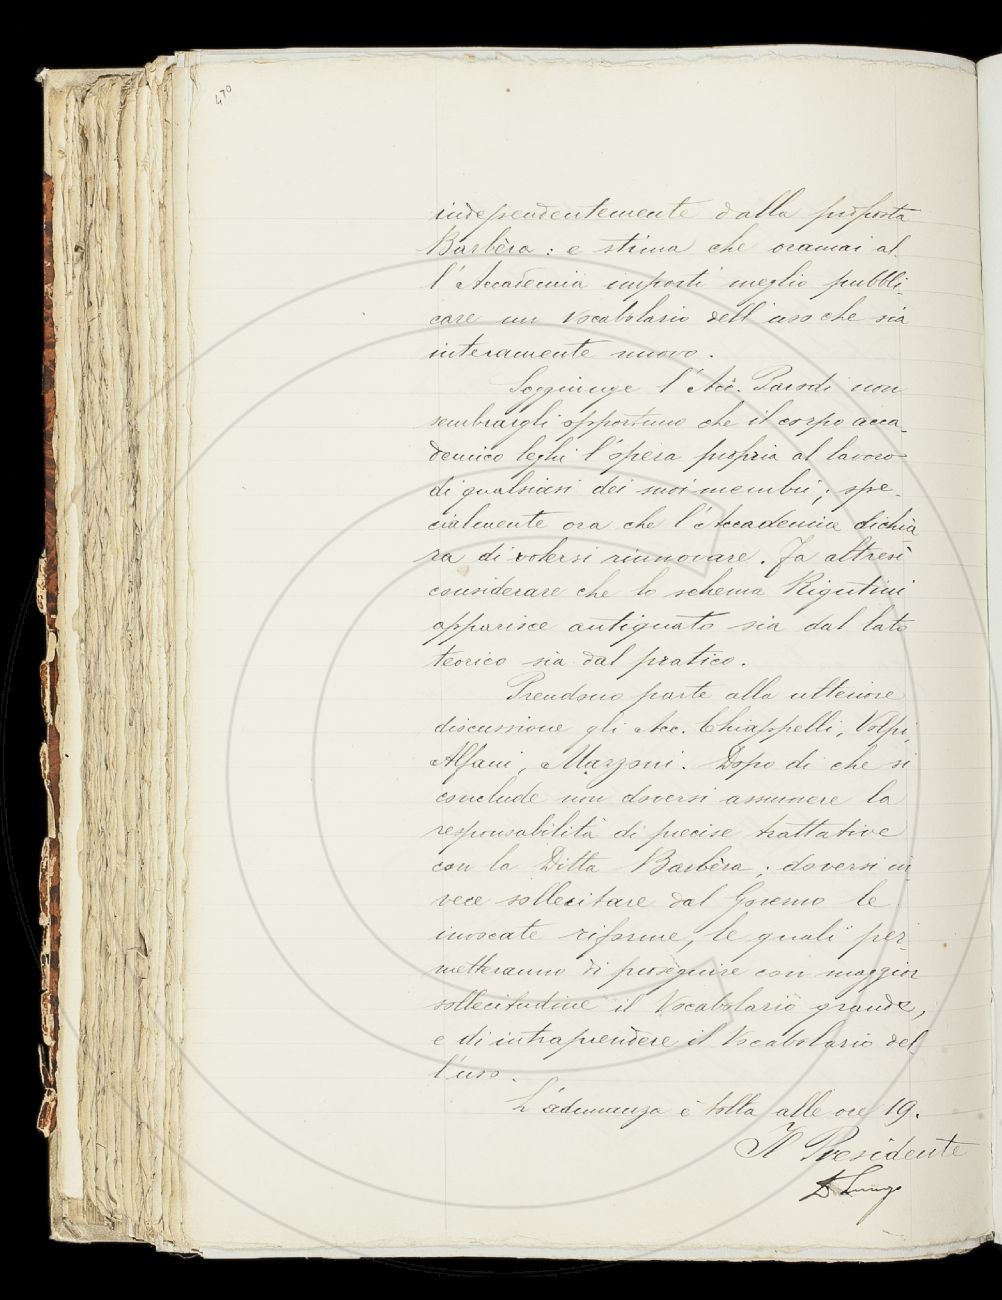 470
independentemente dalla proposta
Barbèra: e stima che oramai al-
l'Accademia importi meglio pubbli-
care un Vocabolario dell'uso che sia
interamente nuovo.
Soggiunge l'Acc. Parodi non
sembrargli opportuno che il corpo acca-
demico leghi l'opera propria al lavoro
di qualsiasi dei suoi membri; spe-
cialmente ora che l'Accademia dichia-
ra di volersi rinnovare. Fa altresì
considerare che lo schema Rigutini
apparisce antiquato sia dal lato
teorico sia dal pratico.
Prendono parte alla ulteriore
discussione gli Acc. Chiappelli, Volpi,
Alfani, Mazzoni. Dopo di che si
conclude non doversi assumere la
responsabilità di precise trattative
con la Ditta Barbèra; doversi in-
vece sollecitare dal Governo le
invocate riforme, le quali per-
metteranno di proseguire con maggior
sollecitudine il Vocabolario grande,
e di intraprendere il Vocabolario del-
l'uso.
L'adunanza è tolta alle ore 19.
Il Presidente
D Lungo